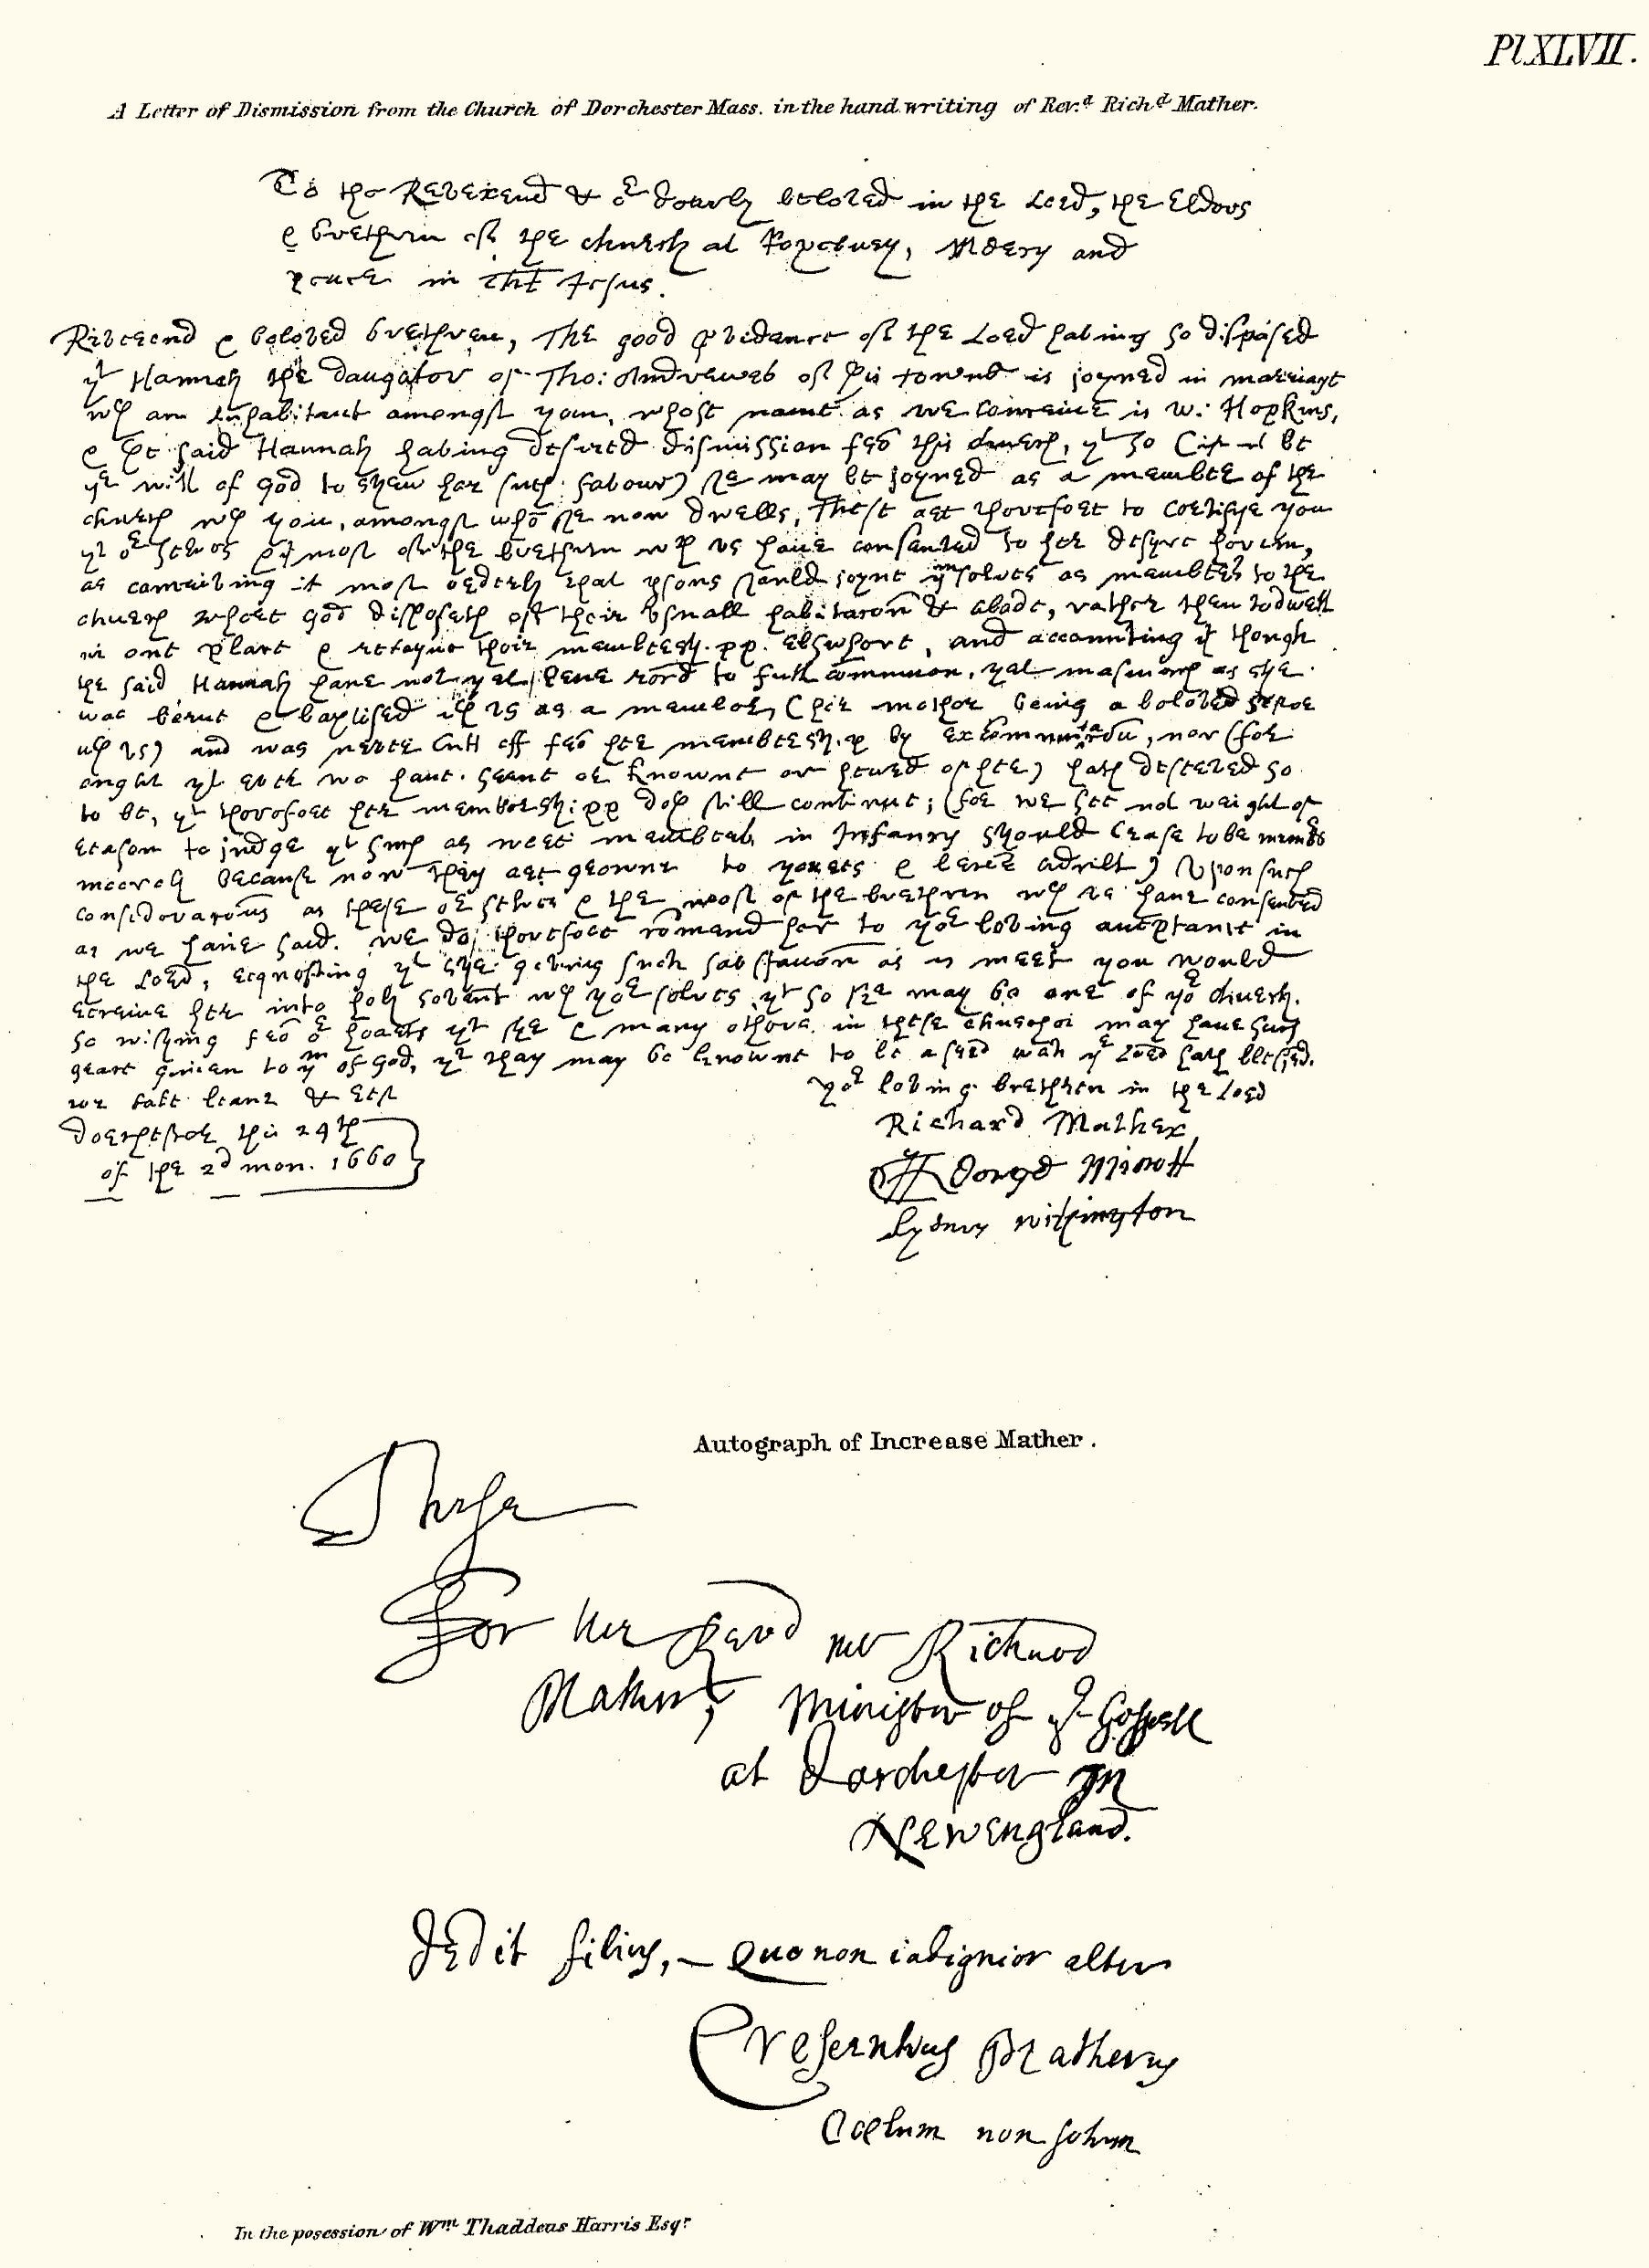 Pl XLVII.
A Letter of Dismission from the Church of Dorchester Mass. in the hand writing of Rev.d Rich.d Mather.
To the Reverend & or dearly beloved in the Lord, the Elders
& brethren of the church at Roxbury, Mercy and
peace in Cht Jesus.
Reverend & beloved brethren, The good pvidence of the Lord having so disposed
yt Hannah the daughter of Tho: Andrewes of this towne is joyned in marriage
wth an Inhabitant amongst you, whose name as we conceive is W: Hopkins,
& the said Hannah having desired dismission frō this church, yt so (if it be
ye will of god to shew her such favour) she may be joyned as a member of the
church wth you, amongst whō she now dwells, These are therefore to certifye you
yt or selves & ye most of the brethren wth us have consented to her desyre herein,
as conceiving it most orderly that psons should joyne ymselves as members to the
church where god disposeth of their usuall habitacon & abode, rather then to dwell
in one place & retayne their membersh.pp. elswhere, and accounting yt though
the said Hannah have not yet bene recd to full cōmunion, yet masmuch as she
was borne & baptised wth us as a member, (her mother being a beloved sister
wth us) and was never cutt off frō her membersh.p by excōmunicacōn, nor (for
ought yt ever we have seene or knowne or heard of her) hath deserved so
to be, yt therefore her membersh:pp doth still continue; (for we see not weight of
reason to judge yt such as were members in Infancy should cease to be membrs
meerely because now they are growne to yeares & bene adult) Upon such
consideracons as these or selves & the most of the brethren wth us have consented
as we have said. We do therefore comend her to yor loving acceptance in
the Lord, requesting yt she giving such satisfaccon as is meet you would
receive her into holy covent wth yor selves yt so she may be one of yor church.
So wishing frō or hearts yt she & many others in these churches may have such
grace given to ym of god, yt they may be knowne to be a seed wch ye Lord hath blessed.
we take leave & rest
yor loving brethren in the Lord
Dorchester this 29th
of the 2d mon. 1660
Richard Mather
George Minott
Autograph of Increase Mather.
These
For the Revd mr Richard
Mather, Minister of ye Gospell
at Dorchester In
New England.
Dedit filius, — Quo non indignior alter
Crescentius Matherus
Coelum non solum
In the posession of Wm Thaddeus Harris Esqr